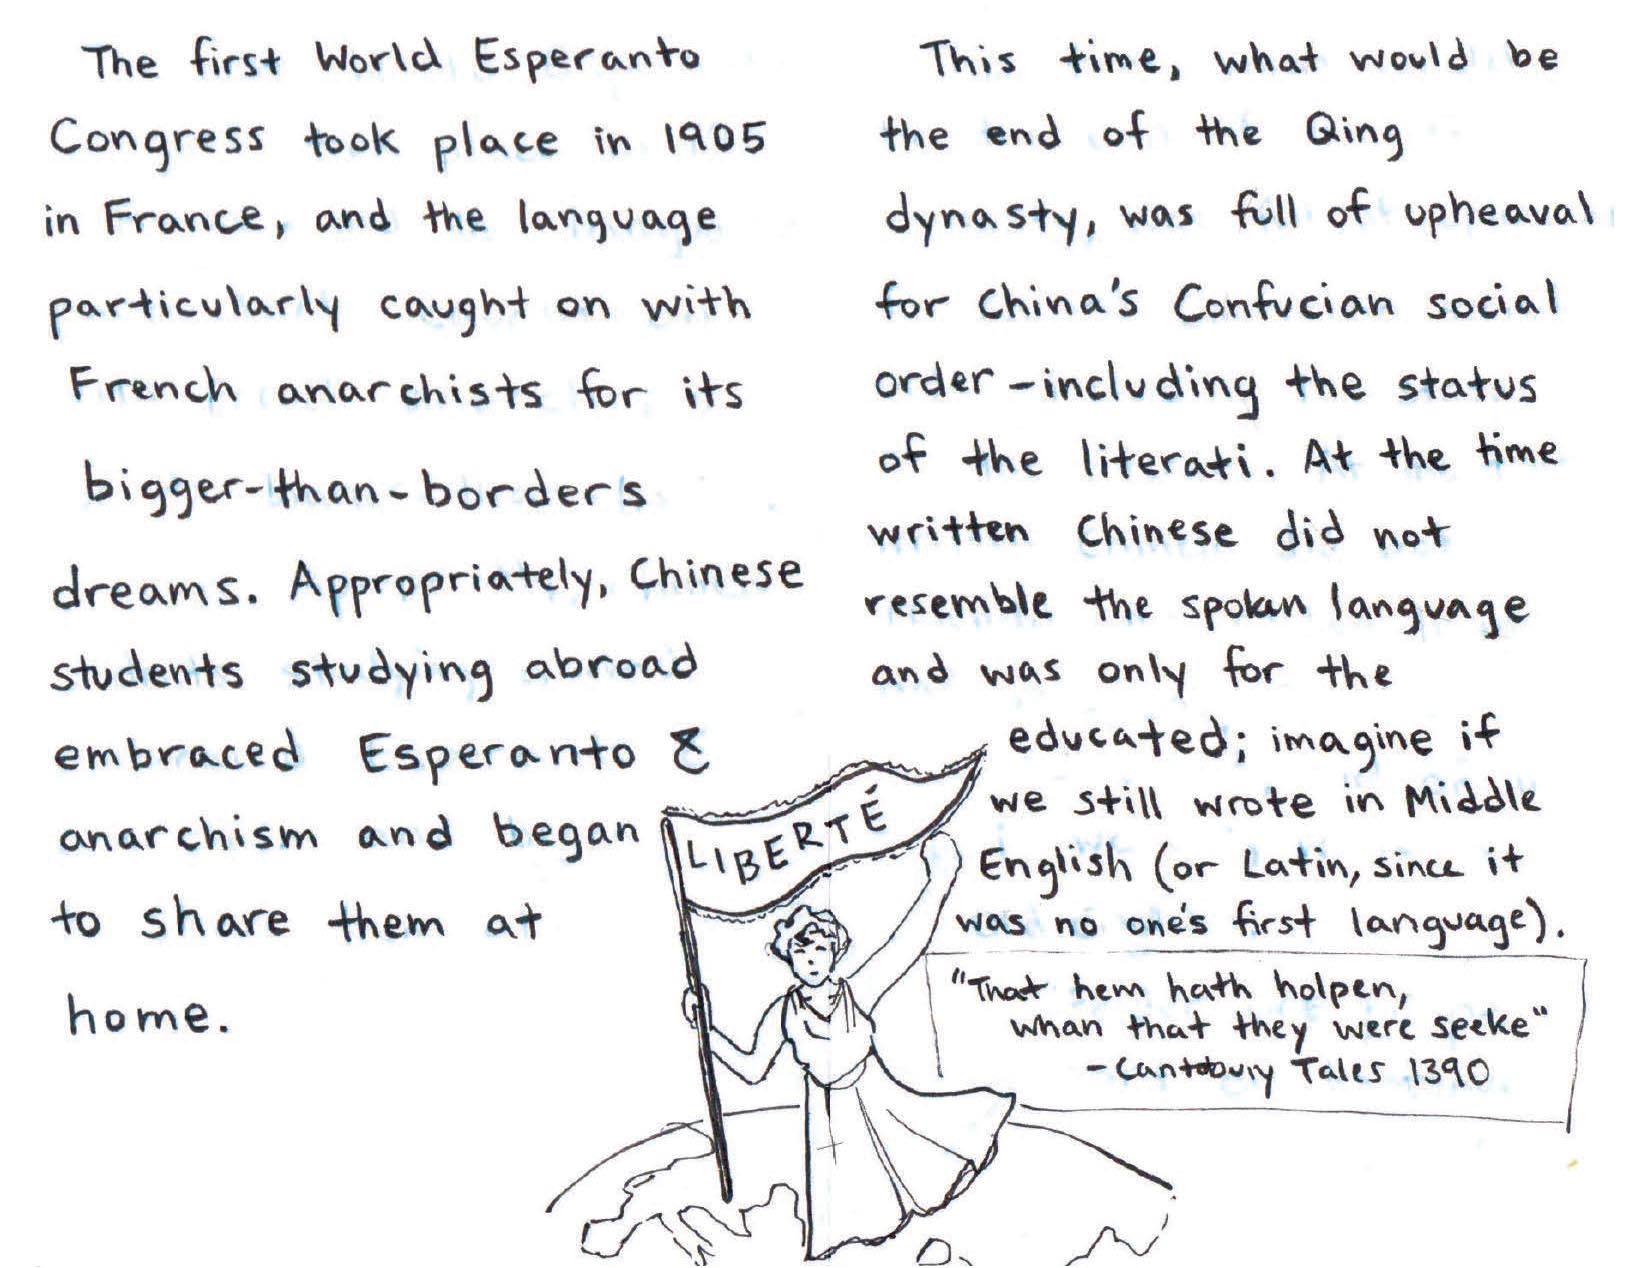 The first World Esperanto
Congress took place in 1905
in France, and the language
particularly caught on with
French anarchists for its
bigger-than-borders
dreams. Appropriately, Chinese
students studying abroad
embraced Esperanto &
anarchism and began
to share them at
home.
LIBERTÉ
This time, what would be
the end of the Qing
dynasty, was full of upheaval
for China's Confucian social
order-including the status
of the literati. At the time
written Chinese did not
resemble the spoken language
and was only for the
educated; imagine if
we still wrote in Middle
English (or Latin, since it
was no one's first language).
"That hem hath holpen,
whan that they were seeke"
-Cantebury Tales 1390